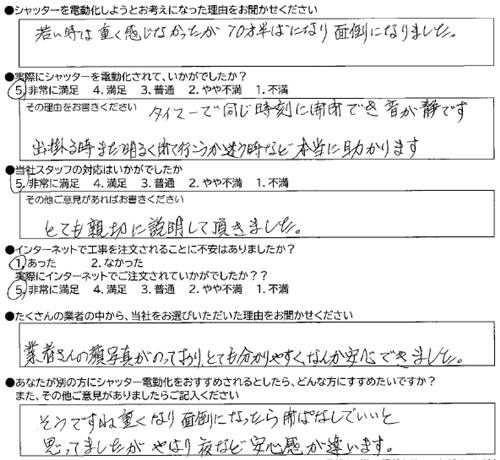 ●シャッターを電動化しようとお考えになった理由をお聞かせください
若い時は重く感じなかったが 70才半ばになり 面倒になりました。
●実際にシャッターを電動化されて、いかがでしたか?
5. 非常に満足 4. 満足 3. 普通 2. やや不満 1. 不満
その理由をお書きください タイマーで同じ時刻に開閉でき 音が静です
出掛る時まだ明るく閉て行こうか迷う時など 本当に助かります
●当社スタッフの対応はいかがでしたか
5. 非常に満足 4. 満足 3. 普通 2. やや不満 1. 不満
その他ご意見があればお書きください
とても親切に説明して頂きました。
●インターネットで工事を注文されることに不安はありましたか?
1. あった 2. なかった
実際にインターネットでご注文されていかがでしたか??
5. 非常に満足 4. 満足 3. 普通 2. やや不満 1. 不満
●たくさんの業者の中から、当社をお選びいただいた理由をお聞かせください
業者さんの顔写真がのっており、とても分かりやすく、なんか安心できました。
●あなたが別の方にシャッター電動化をおすすめされるとしたら、どんな方にすすめたいですか?
また、その他ご意見がありましたらご記入ください
そうですね 重くなり 面倒になったら 開ぱなしでいいと
思ってましたが やはり 夜など 安心感が違います。